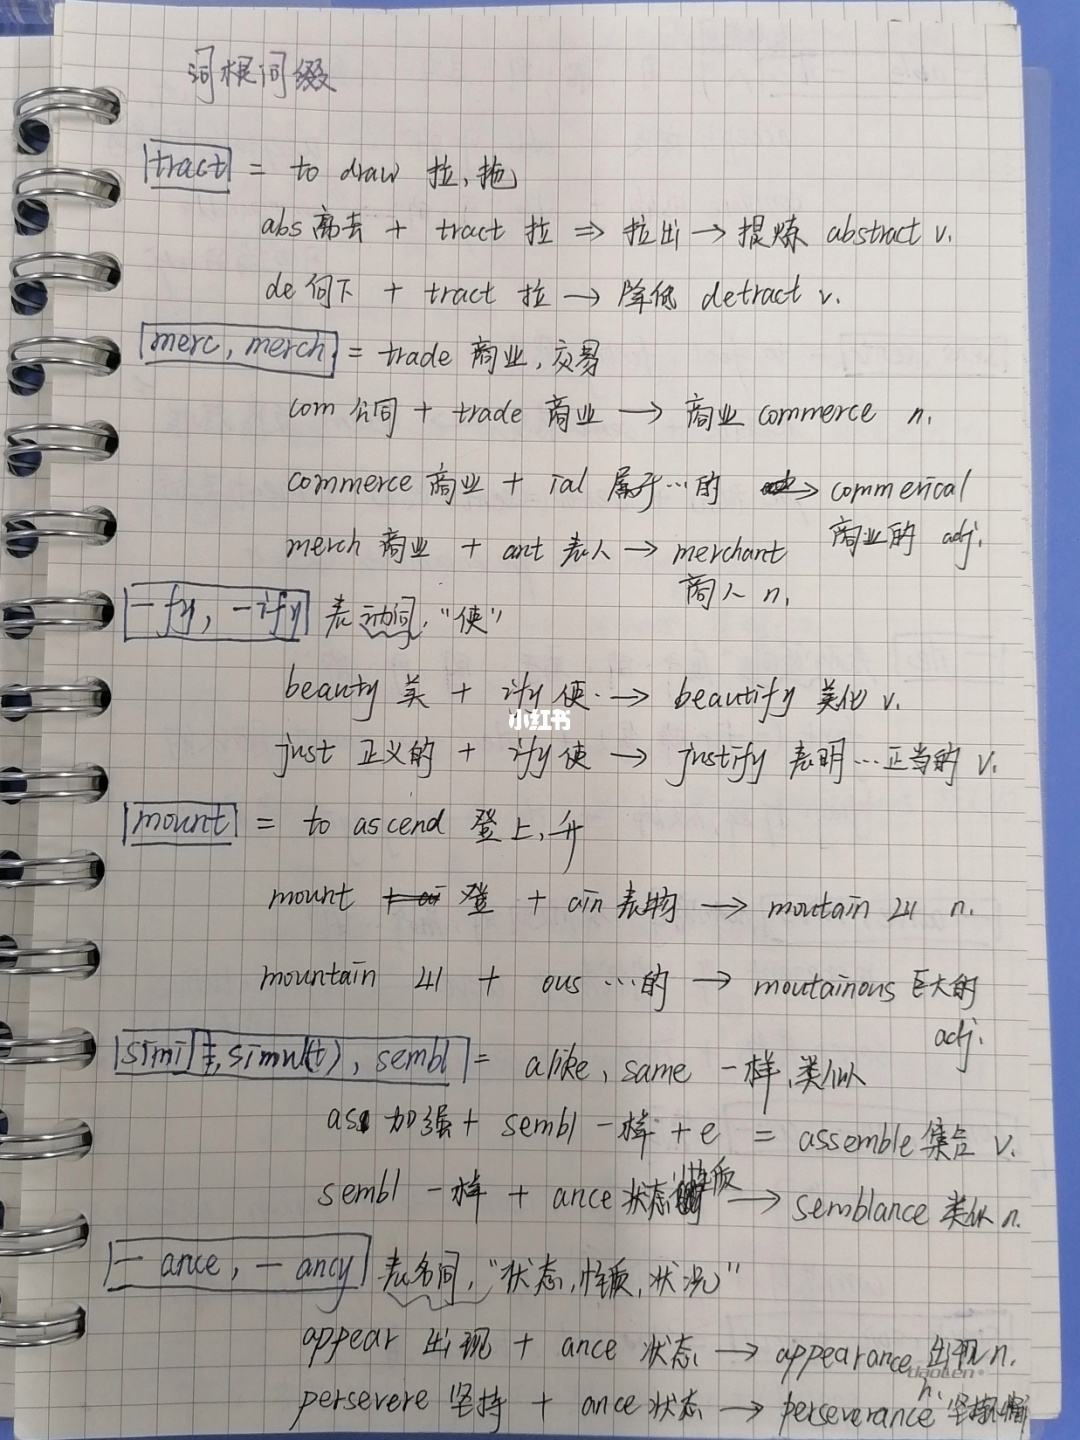 词根词缀
tract = to draw 拉,拖
abs 离去 + tract 拉 ⇒ 拉出 → 提炼 abstract v.
de 向下 + tract 拉 → 降低 detract v.
merc, merch = trade 商业,交易
com 公同 + trade 商业 → 商业 commerce n.
commerce 商业 + ial 属于…的 → commerical
商业的 adj.
merch 商业 + ant 表人 → merchant
商人 n.
-fy, -ify 表动词,"使"
beauty 美 + ify 使 → beautify 美化 v.
小红书
just 正义的 + ify 使 → justify 表明…正当的 v.
mount = to ascend 登上,升
mount 登 + ain 表物 → moutain 山 n.
mountain 山 + ous …的 → moutainous 巨大的
adj.
simil, simul(t), sembl = alike, same 一样,类似
as 加强 + sembl 一样 + e = assemble 集合 v.
sembl 一样 + ance 状态 性质 → semblance 类似 n.
-ance, -ancy 表名词,"状态,性质,状况"
appear 出现 + ance 状态 → appearance 出现 n.
persevere 坚持 + ance 状态 → perseverance n.